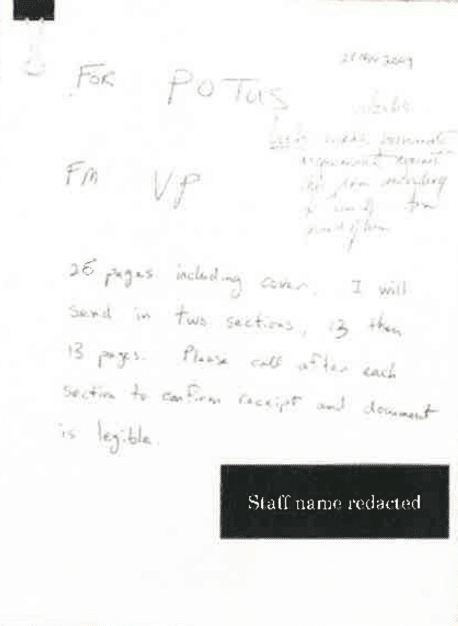 NOV 2009
FOR POTUS
made
argument
FM VP
26 pages including cover. I will
send in two sections, 13 then
13 pages. Please call after each
section to confirm receipt and document
is legible.
Staff name redacted